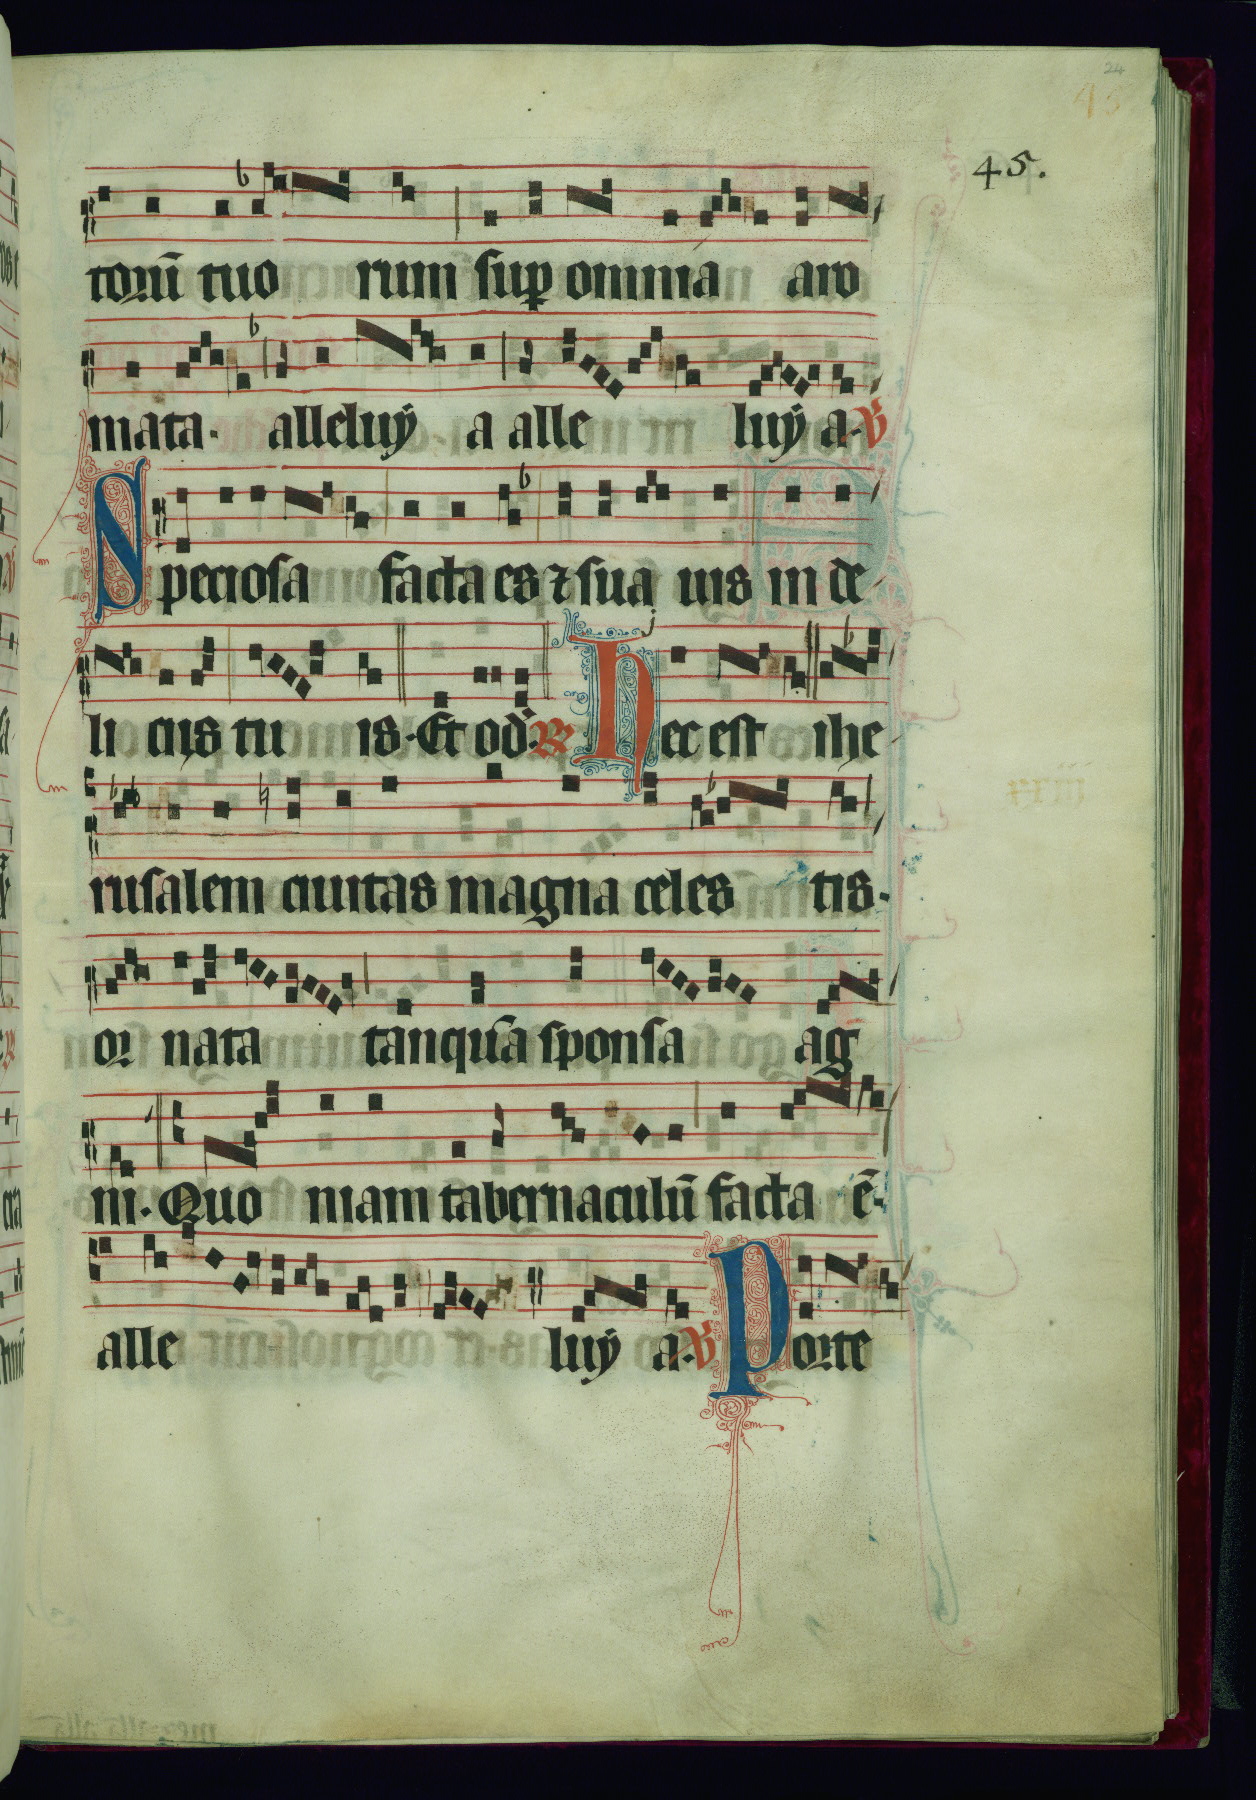 24
45
45.
torū tuo rum sup omnia aro
mata· alleluÿ a alle luÿ a· V
Speciosa facta es ⁊ sua uis in de
li ciis tu is· Et od̄· R Hec est ihe
rusalem ciuitas magna celes tis·
or nata tanquā sponsa ag
ni· Quo niam tabernaculū facta ē·
alle luÿ a· V Porte